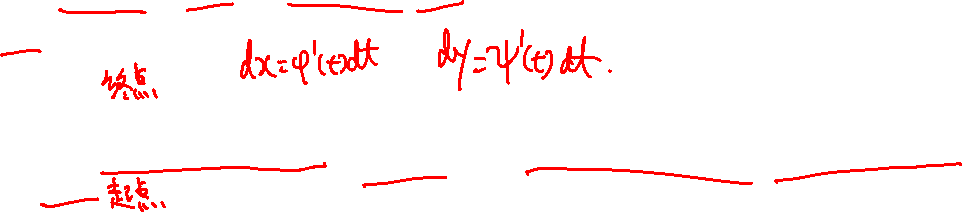 终点 dx=φ'(t)dt dy=ψ'(t)dt.
起点